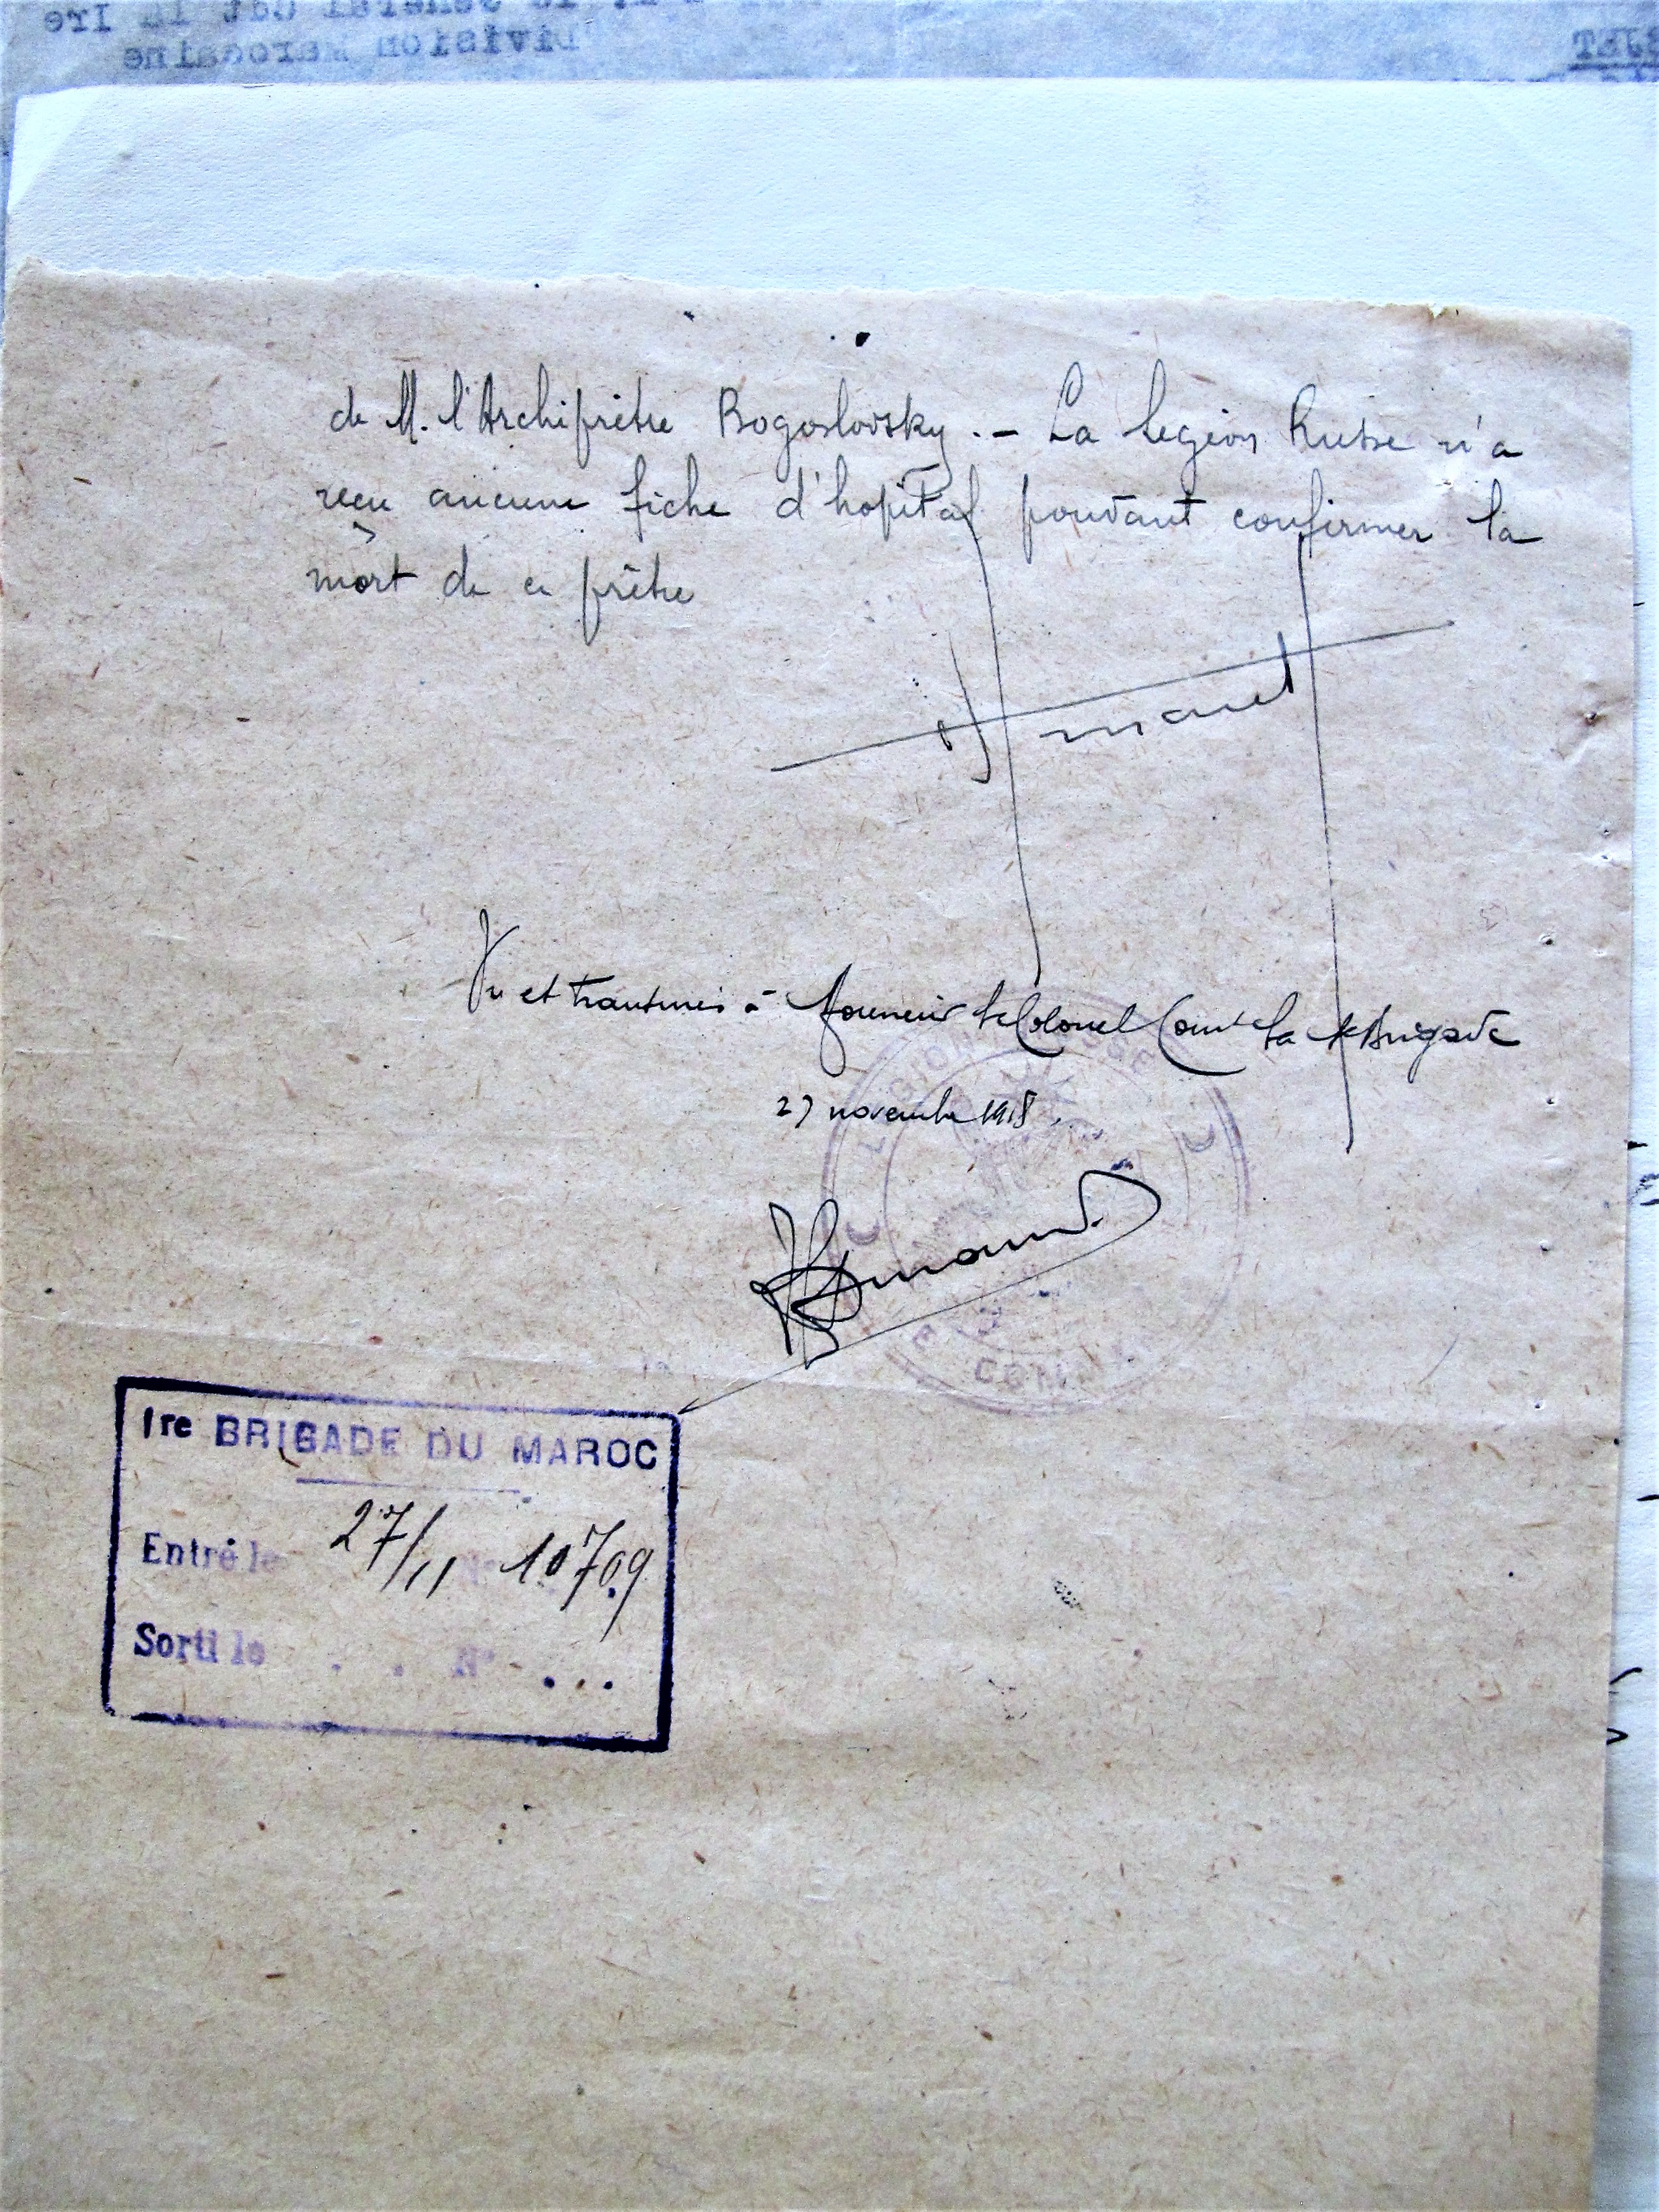 Division Marocaine
de M. l'Archiprêtre Bogoslovsky. - La Légion Russe n'a
reçu aucune fiche d'hopital pouvant confirmer la
mort de ce prêtre
Vu et transmis à Monsieur le Colonel Comt la 1re Brigade
27 novembre 1918.
LÉGION RUSSE
1re BRIGADE DU MAROC
Entré le 27/11 N° 10709
Sorti le . . N° ...